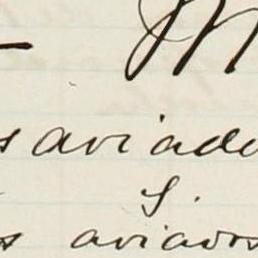 — M
s aviado
S.
s aviaros